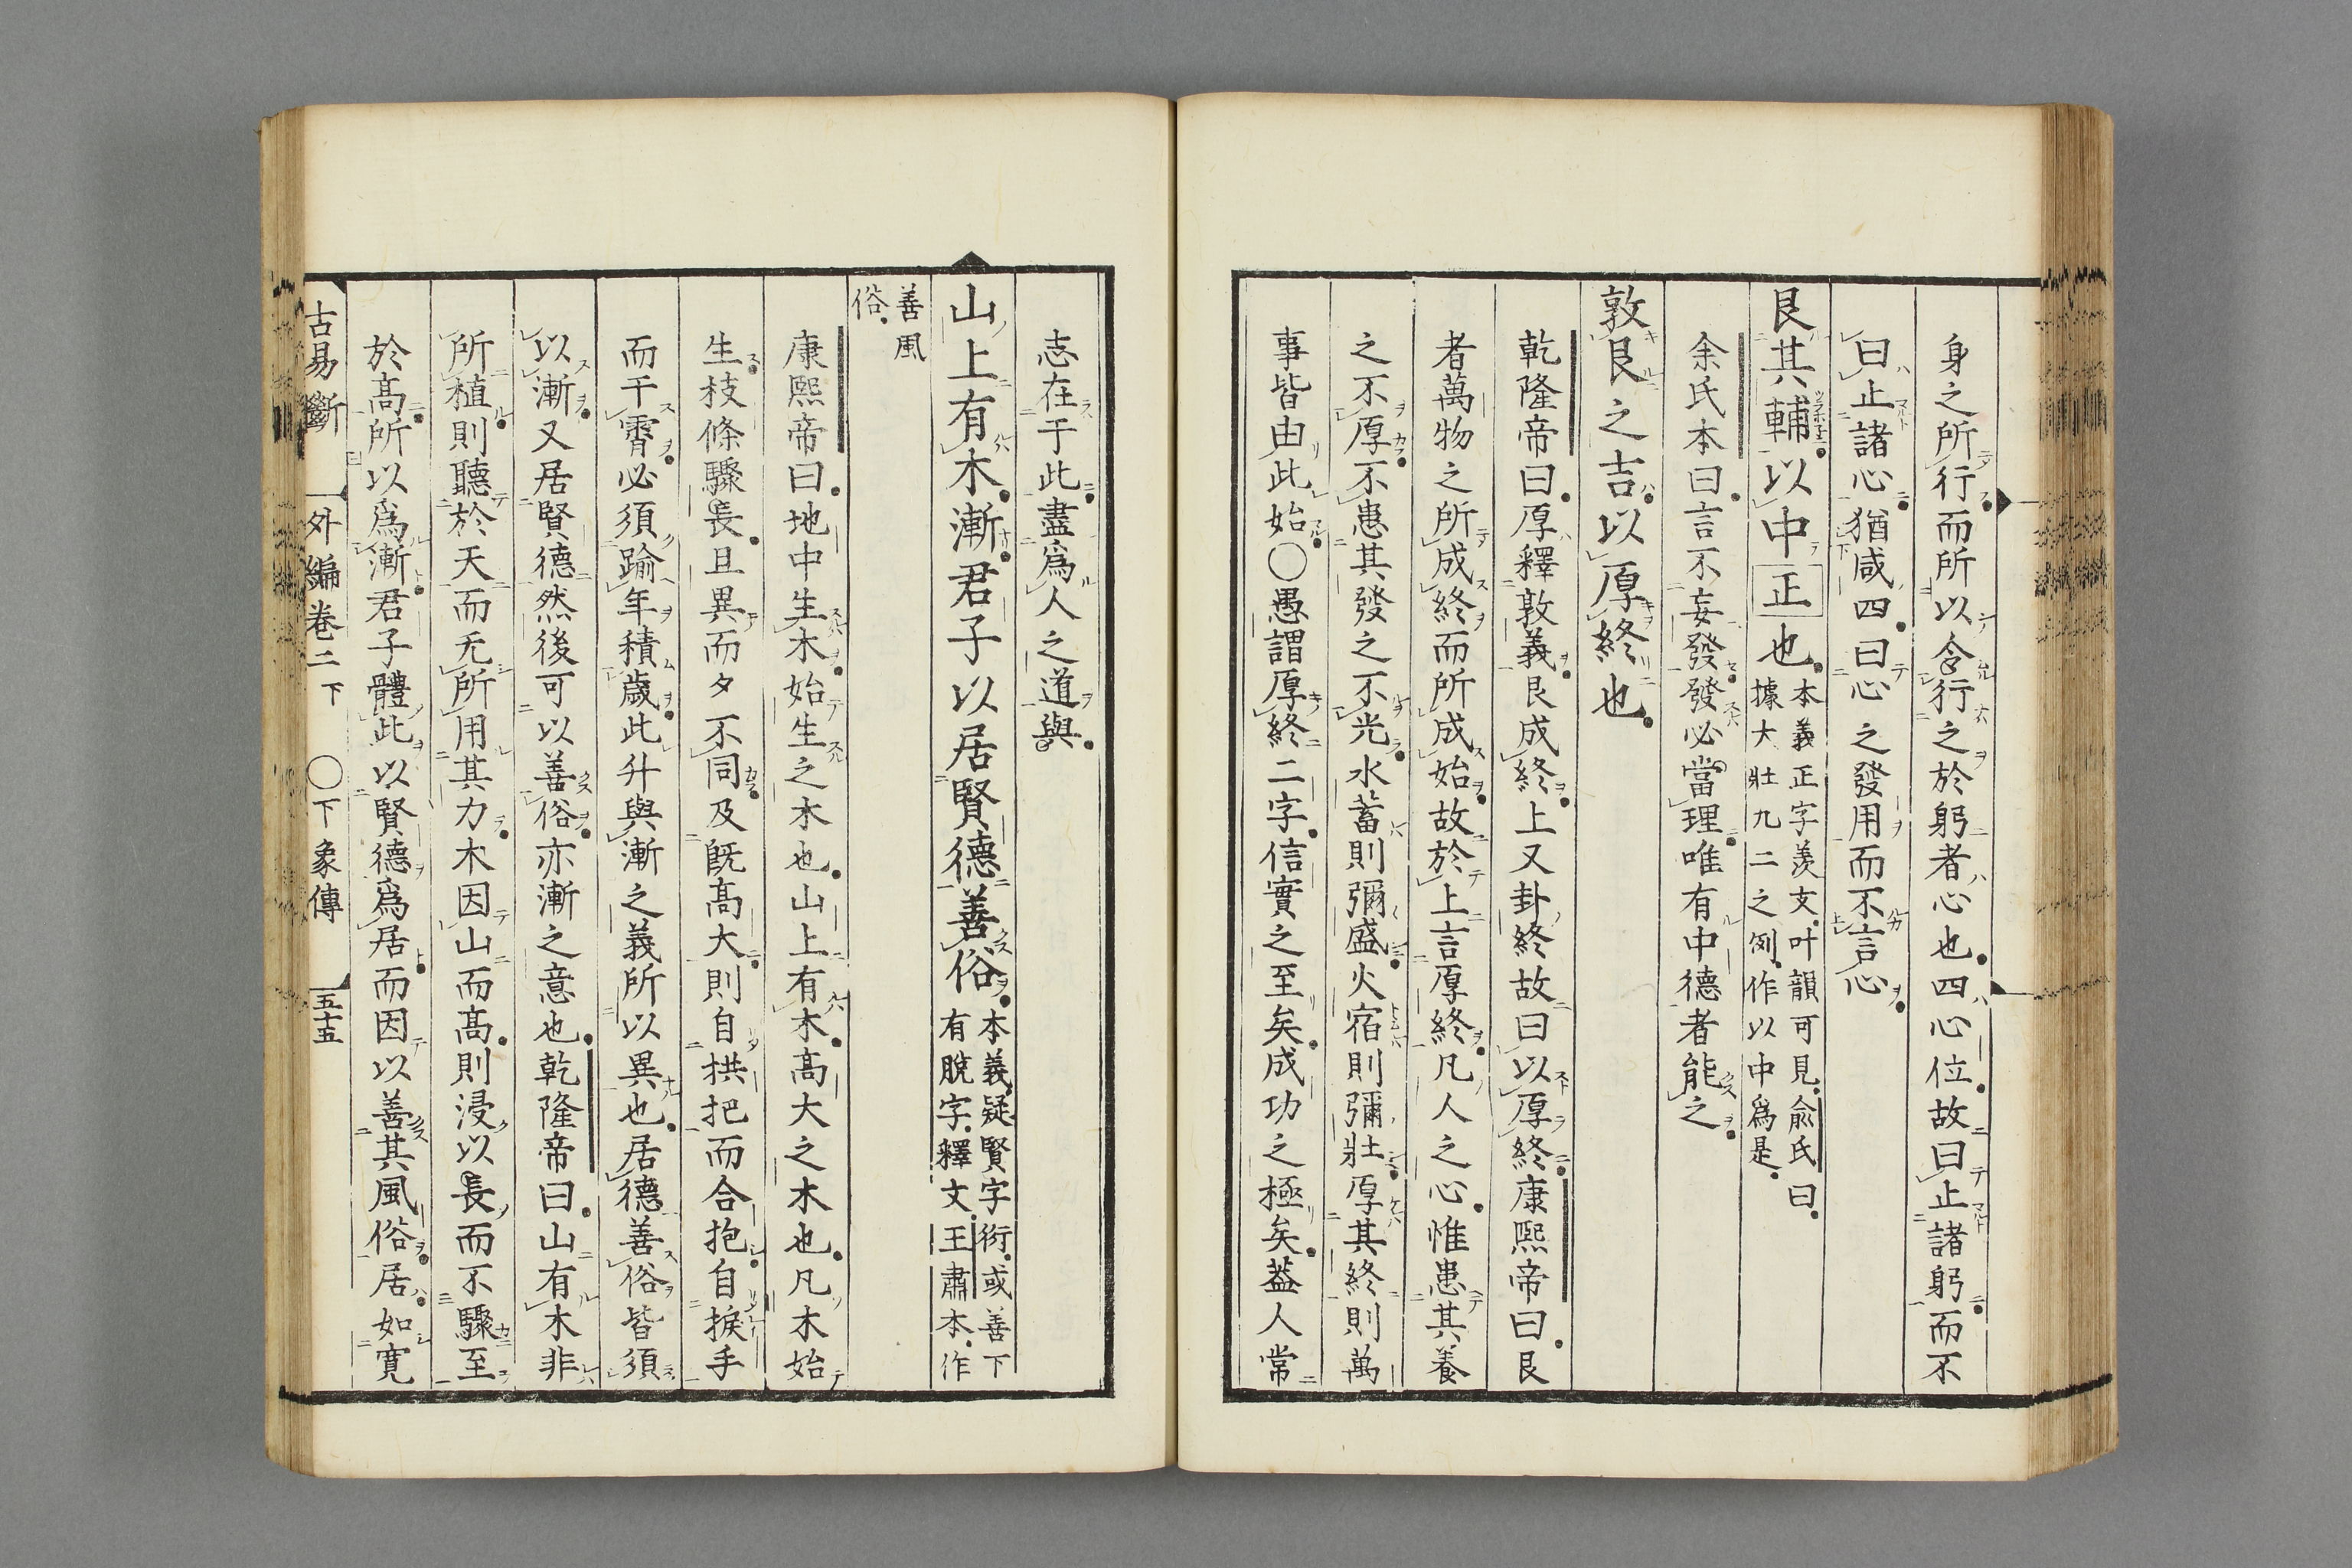 身之所行而所以含行之於躬者心也四心位故曰止諸躬而不
曰止諸心猶咸四曰心之發用而不言心
艮其輔以中正也本義正字羨文叶韻可見俞氏曰
據大壯九二之例作以中爲是
余氏本曰言不妄發發必當理唯有中德者能之
敦艮之吉以厚終也
乾隆帝曰厚釋敦義艮成終上又卦終故曰以厚終康熙帝曰艮
者萬物之所成終而所成始故於上言厚終凡人之心惟患其養
之不厚不患其發之不光水蓄則彌盛火宿則彌壯厚其終則萬
事皆由此始〇愚謂厚終二字信實之至矣成功之極矣葢人常
志在于此盡爲人之道與
山上有木漸君子以居賢德善俗本義疑賢字衍或善下
有脫字釋文王肅本作
善風
俗
康熙帝曰地中生木始生之木也山上有木高大之木也凡木始
生枝條驟長旦異而夕不同及既高大則自拱把而合抱自捩手
而干霄必須踰年積歲此升與漸之義所以異也居德善俗皆須
以漸又居賢德然後可以善俗亦漸之意也乾隆帝曰山有木非
所植則聽於天而无所用其力木因山而高則浸以長而不驟至
於高所以爲漸君子體此以賢德爲居而因以善其風俗居如寬
古易斷 外編卷二下 〇下象傳 五十五